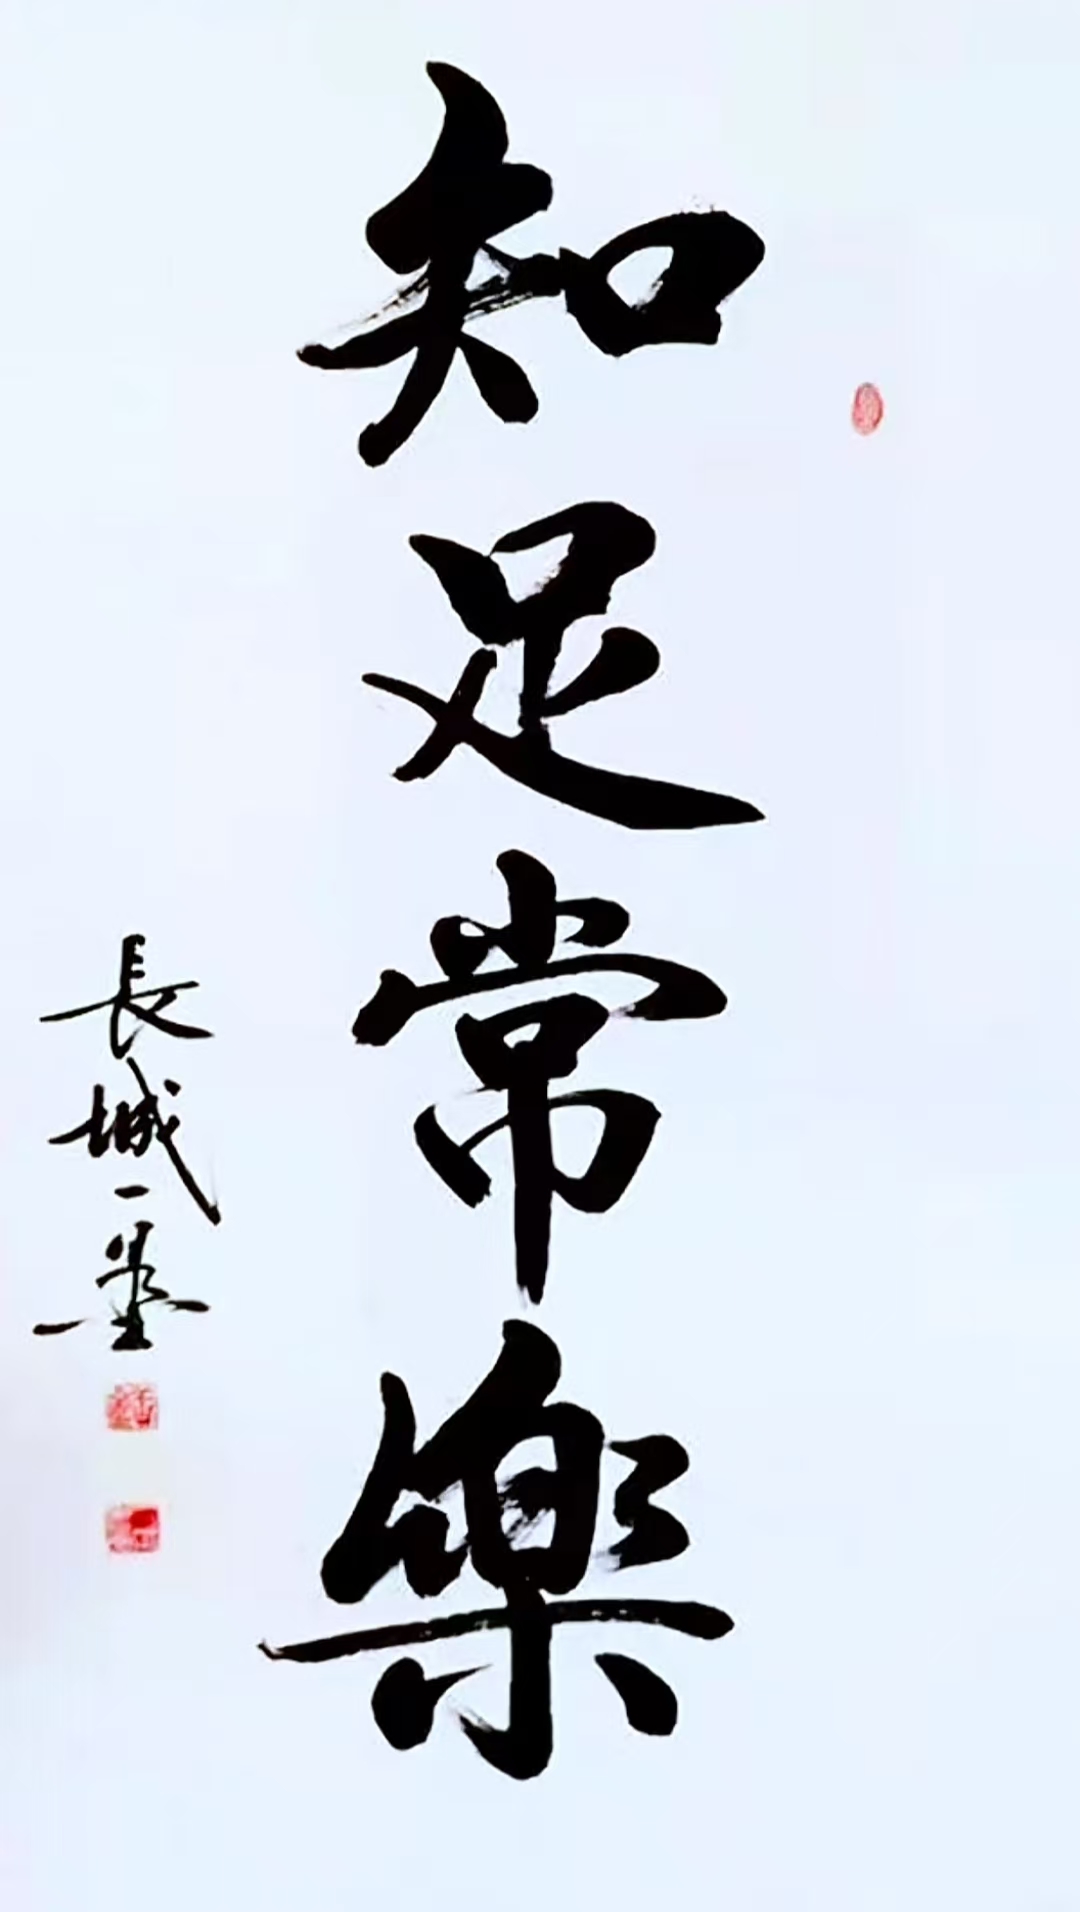 知足常樂
長城一墨